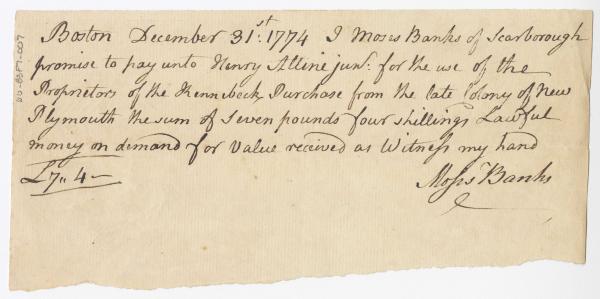 Boston December 31st. 1774 I Moses Banks of Scarborough
promise to pay unto Henry Alline junr. for the use of the
Proprietors of the Kennebeck Purchase from the late Colony of New
Plymouth the sum of Seven pounds four shillings Lawful
money on demand for value received as Witness my hand
£7"4-
Moses Banks